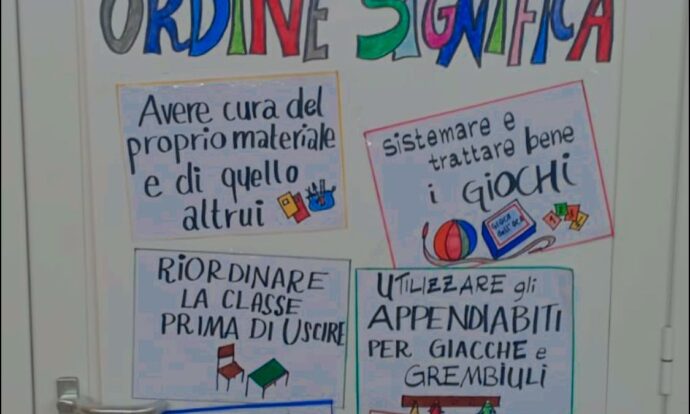 ORDINE SIGNIFICA
Avere cura del
proprio materiale
e di quello
altrui
sistemare e
trattare bene
i GIOCHI
GIOCO
dell'OCA
RIORDINARE
LA CLASSE
PRIMA DI USCIRE
UTILIZZARE gli
APPENDIABITI
PER GIACCHE e
GREMBIULI